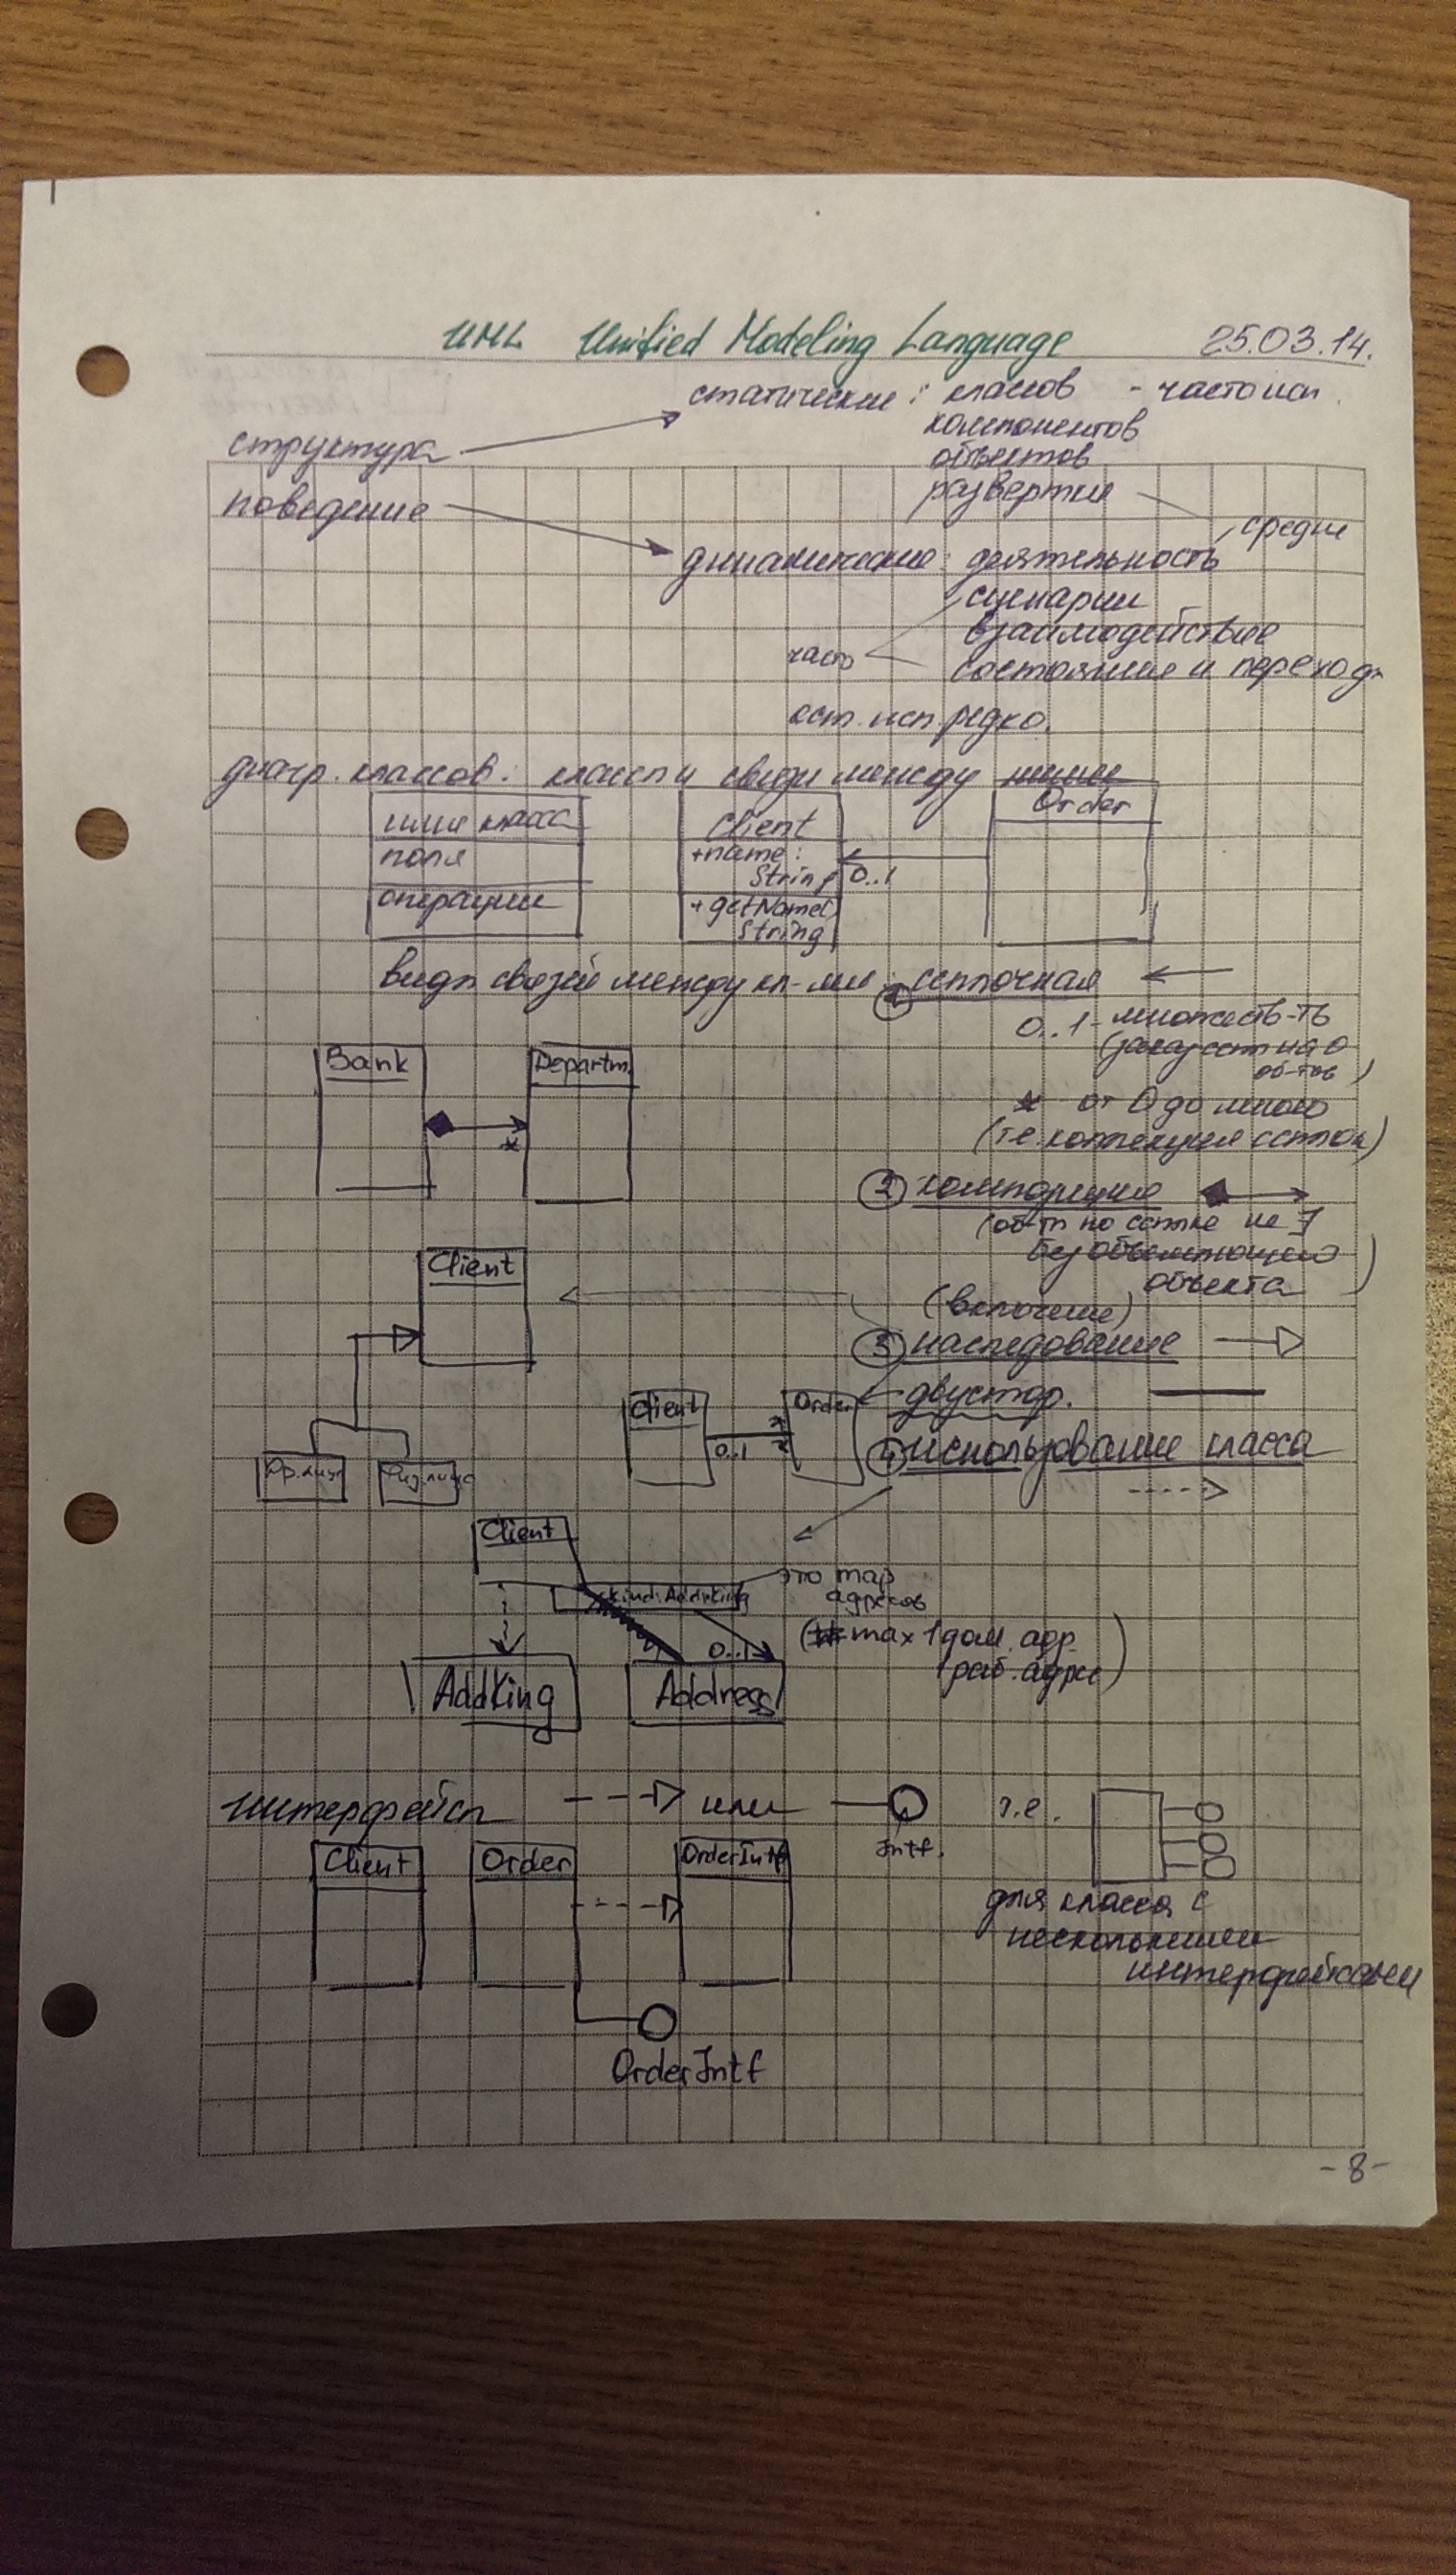 UML Unified Modeling Language 25.03.14.
статические: классов - часто исп.
компонентов
структура
объектов
развертки
поведение
средне
динамические: деятельность
сценарии
взаимодействие
часто
состояние и переходы
ост. исп. редко.
диагр. классов: классы и связи между ними
имя класса
поля
операции
Client
+name:
String
+getName()
String
0..1
Order
виды связей между кл-ми: 1 ссылочная
0..1 - множеств-ть
об-тов)
Bank
Departm.
*
* от 0 до много
(т.е. коллекция ссылок)
2 композиция
(об-ты по ссылке не ∃
без
объекта)
Client
(включение)
3 наследование
двустор.
Client
0..1
*
Order
4 использование класса
Юр. лицо
Физ. лицо
Client
kind: AddrKing
это map
адресов
(max 1 дом. адр.
1 раб. адрес)
0..1
AddKing
Address
интерфейсы
или
Intf.
т.е.
Client
Order
OrderIntf
для класса с
несколькими
интерфейсами
OrderIntf
-8-